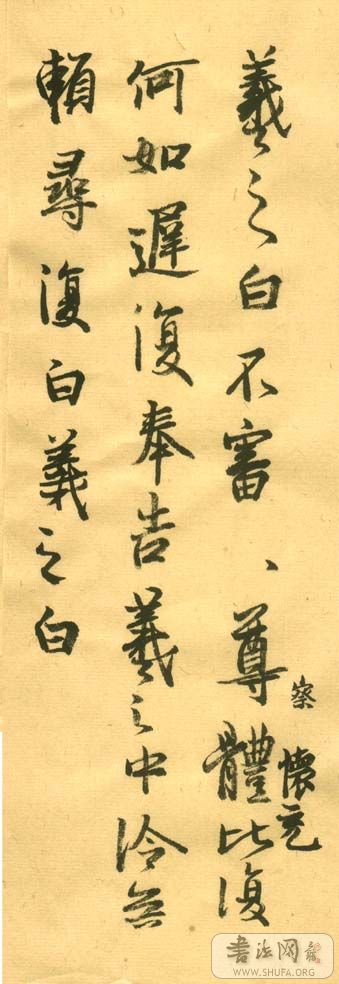 羲之白不審、尊體比復
察
懷充
何如遲復奉告羲之中冷無
賴尋復白羲之白
書法网
WWW.SHUFA.ORG